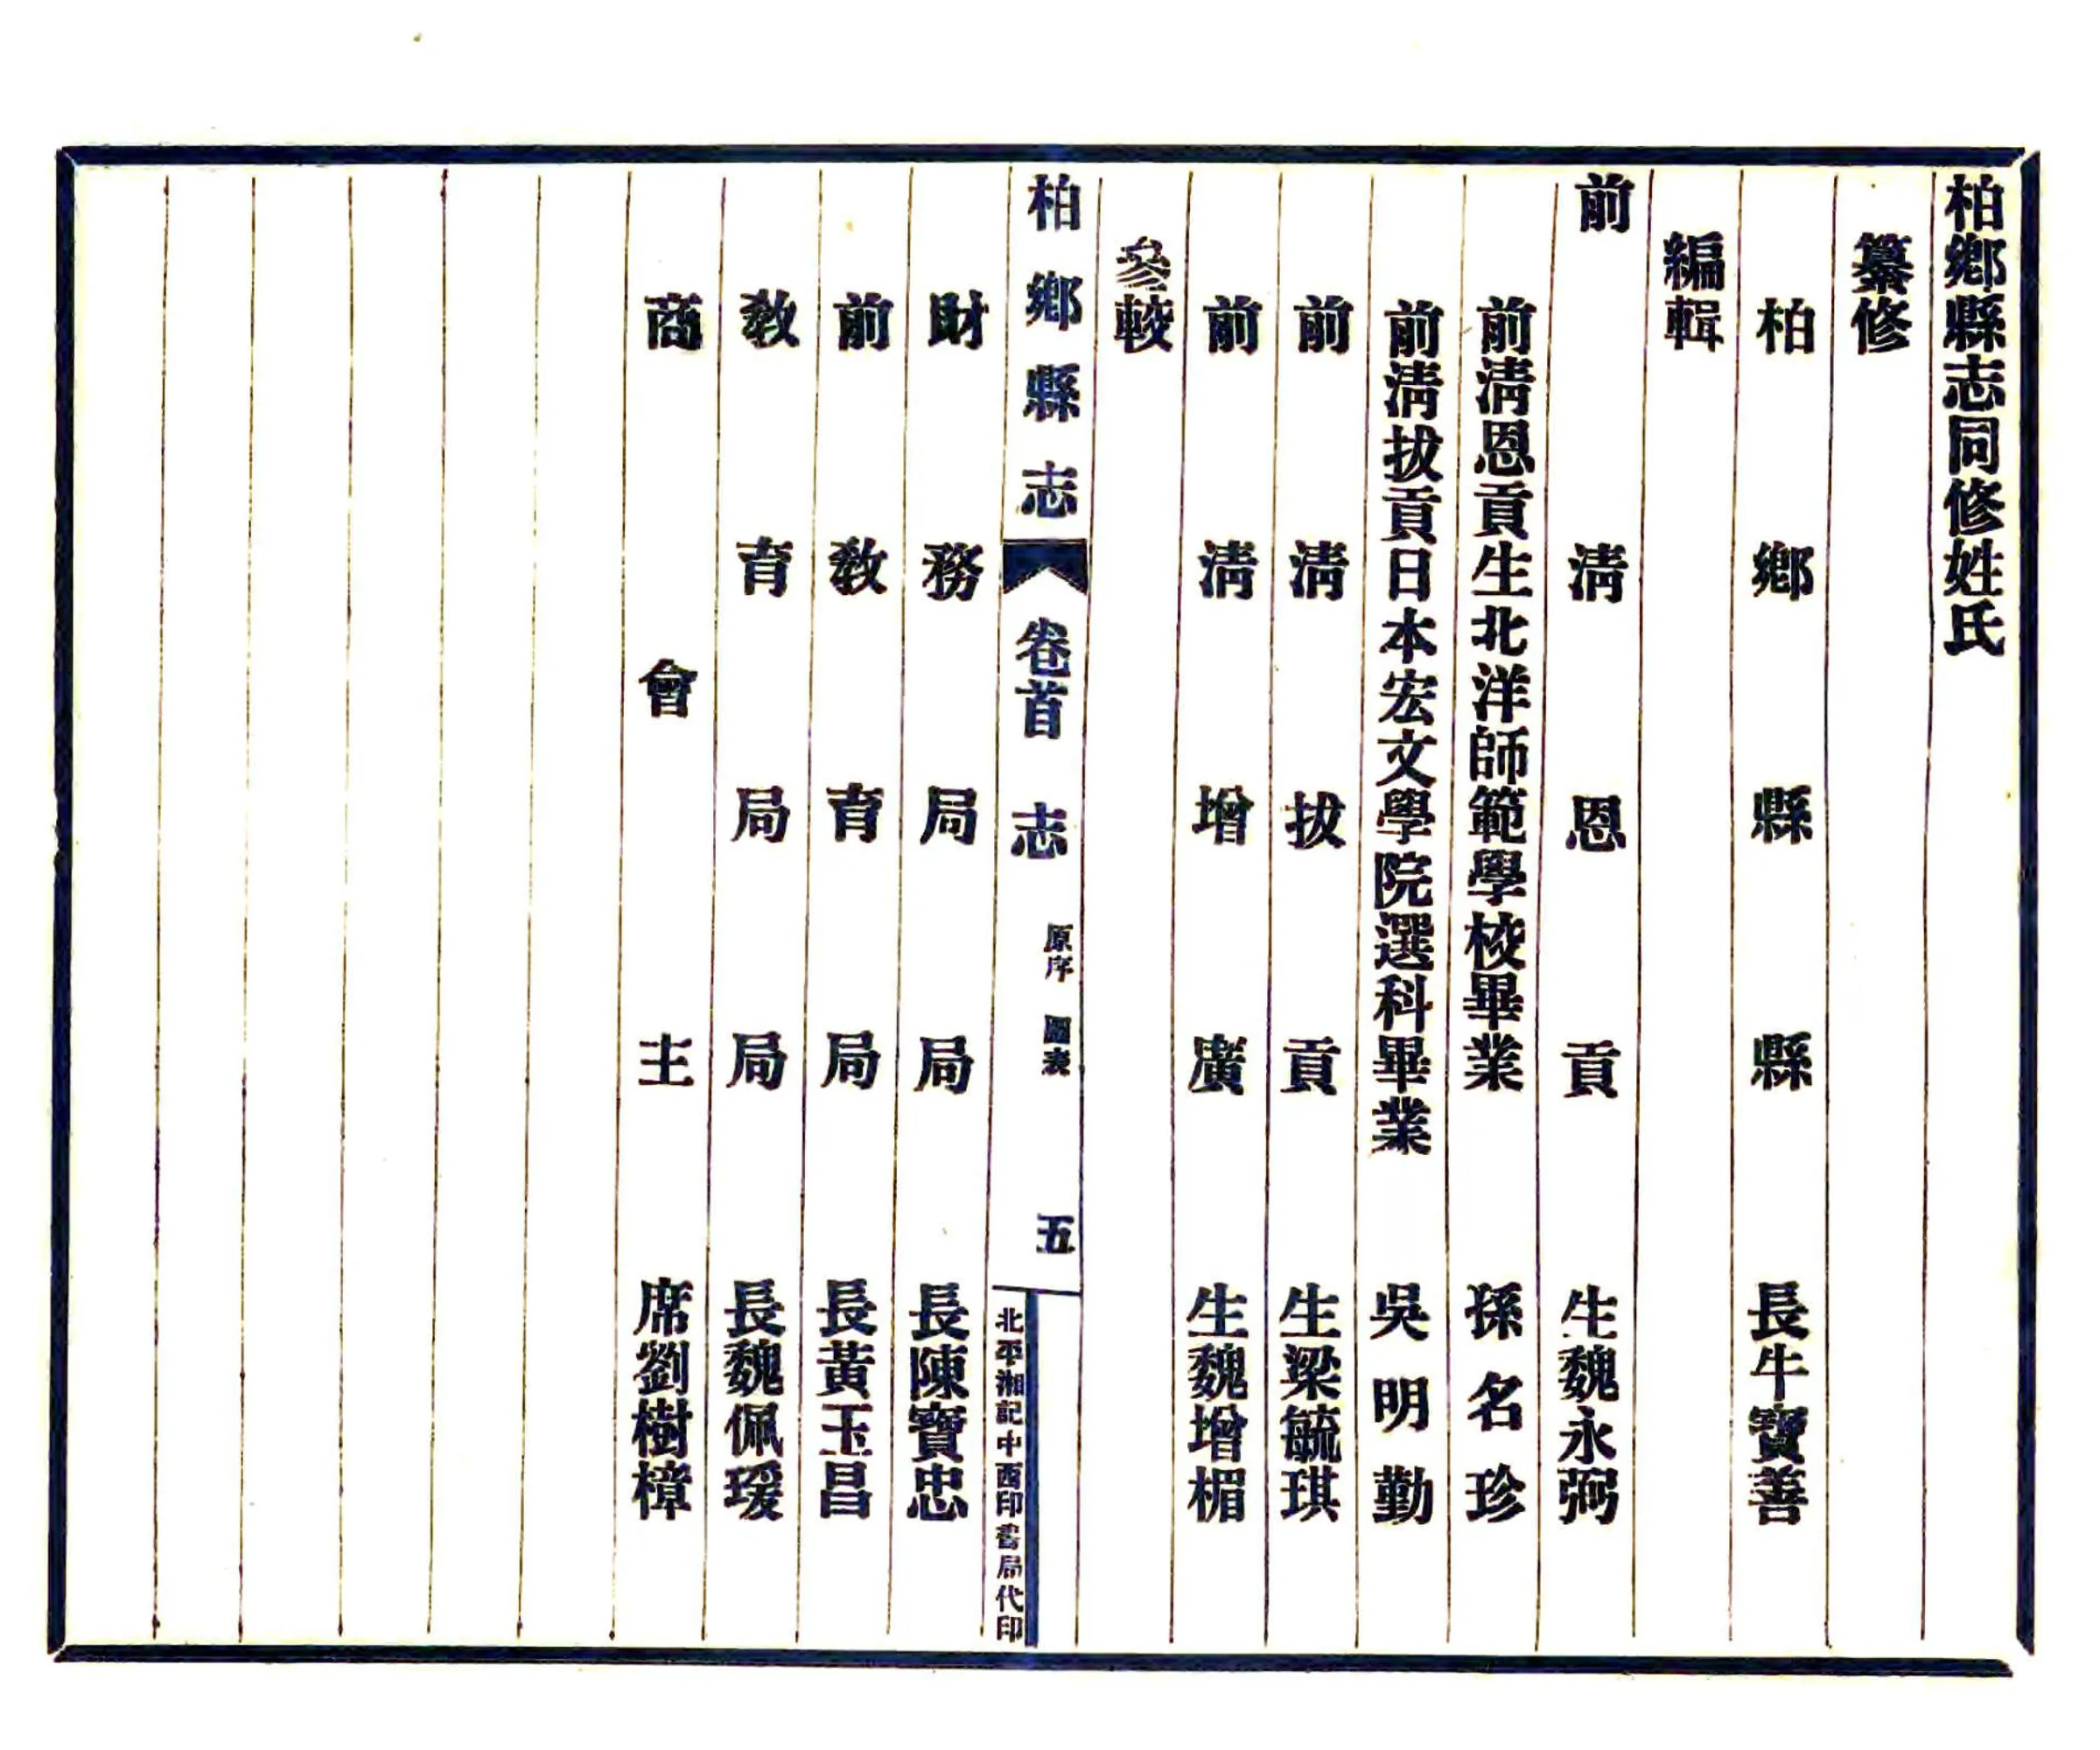 柏鄉縣志同修姓氏
纂修
柏鄉縣縣長牛寶善
編輯
前清恩貢生魏永弼
前清恩貢生北洋師範學校畢業孫名珍
前清拔貢日本宏文學院選科畢業吳明勤
前清拔貢生梁毓琪
前清增廣生魏增楣
參較
柏鄉縣志 卷首 志 原序 圖表 五
北平湘記中西印書局代印
財務局局長陳寶忠
前教育局局長黃玉昌
教育局局長魏佩瑗
商會主席劉樹樟